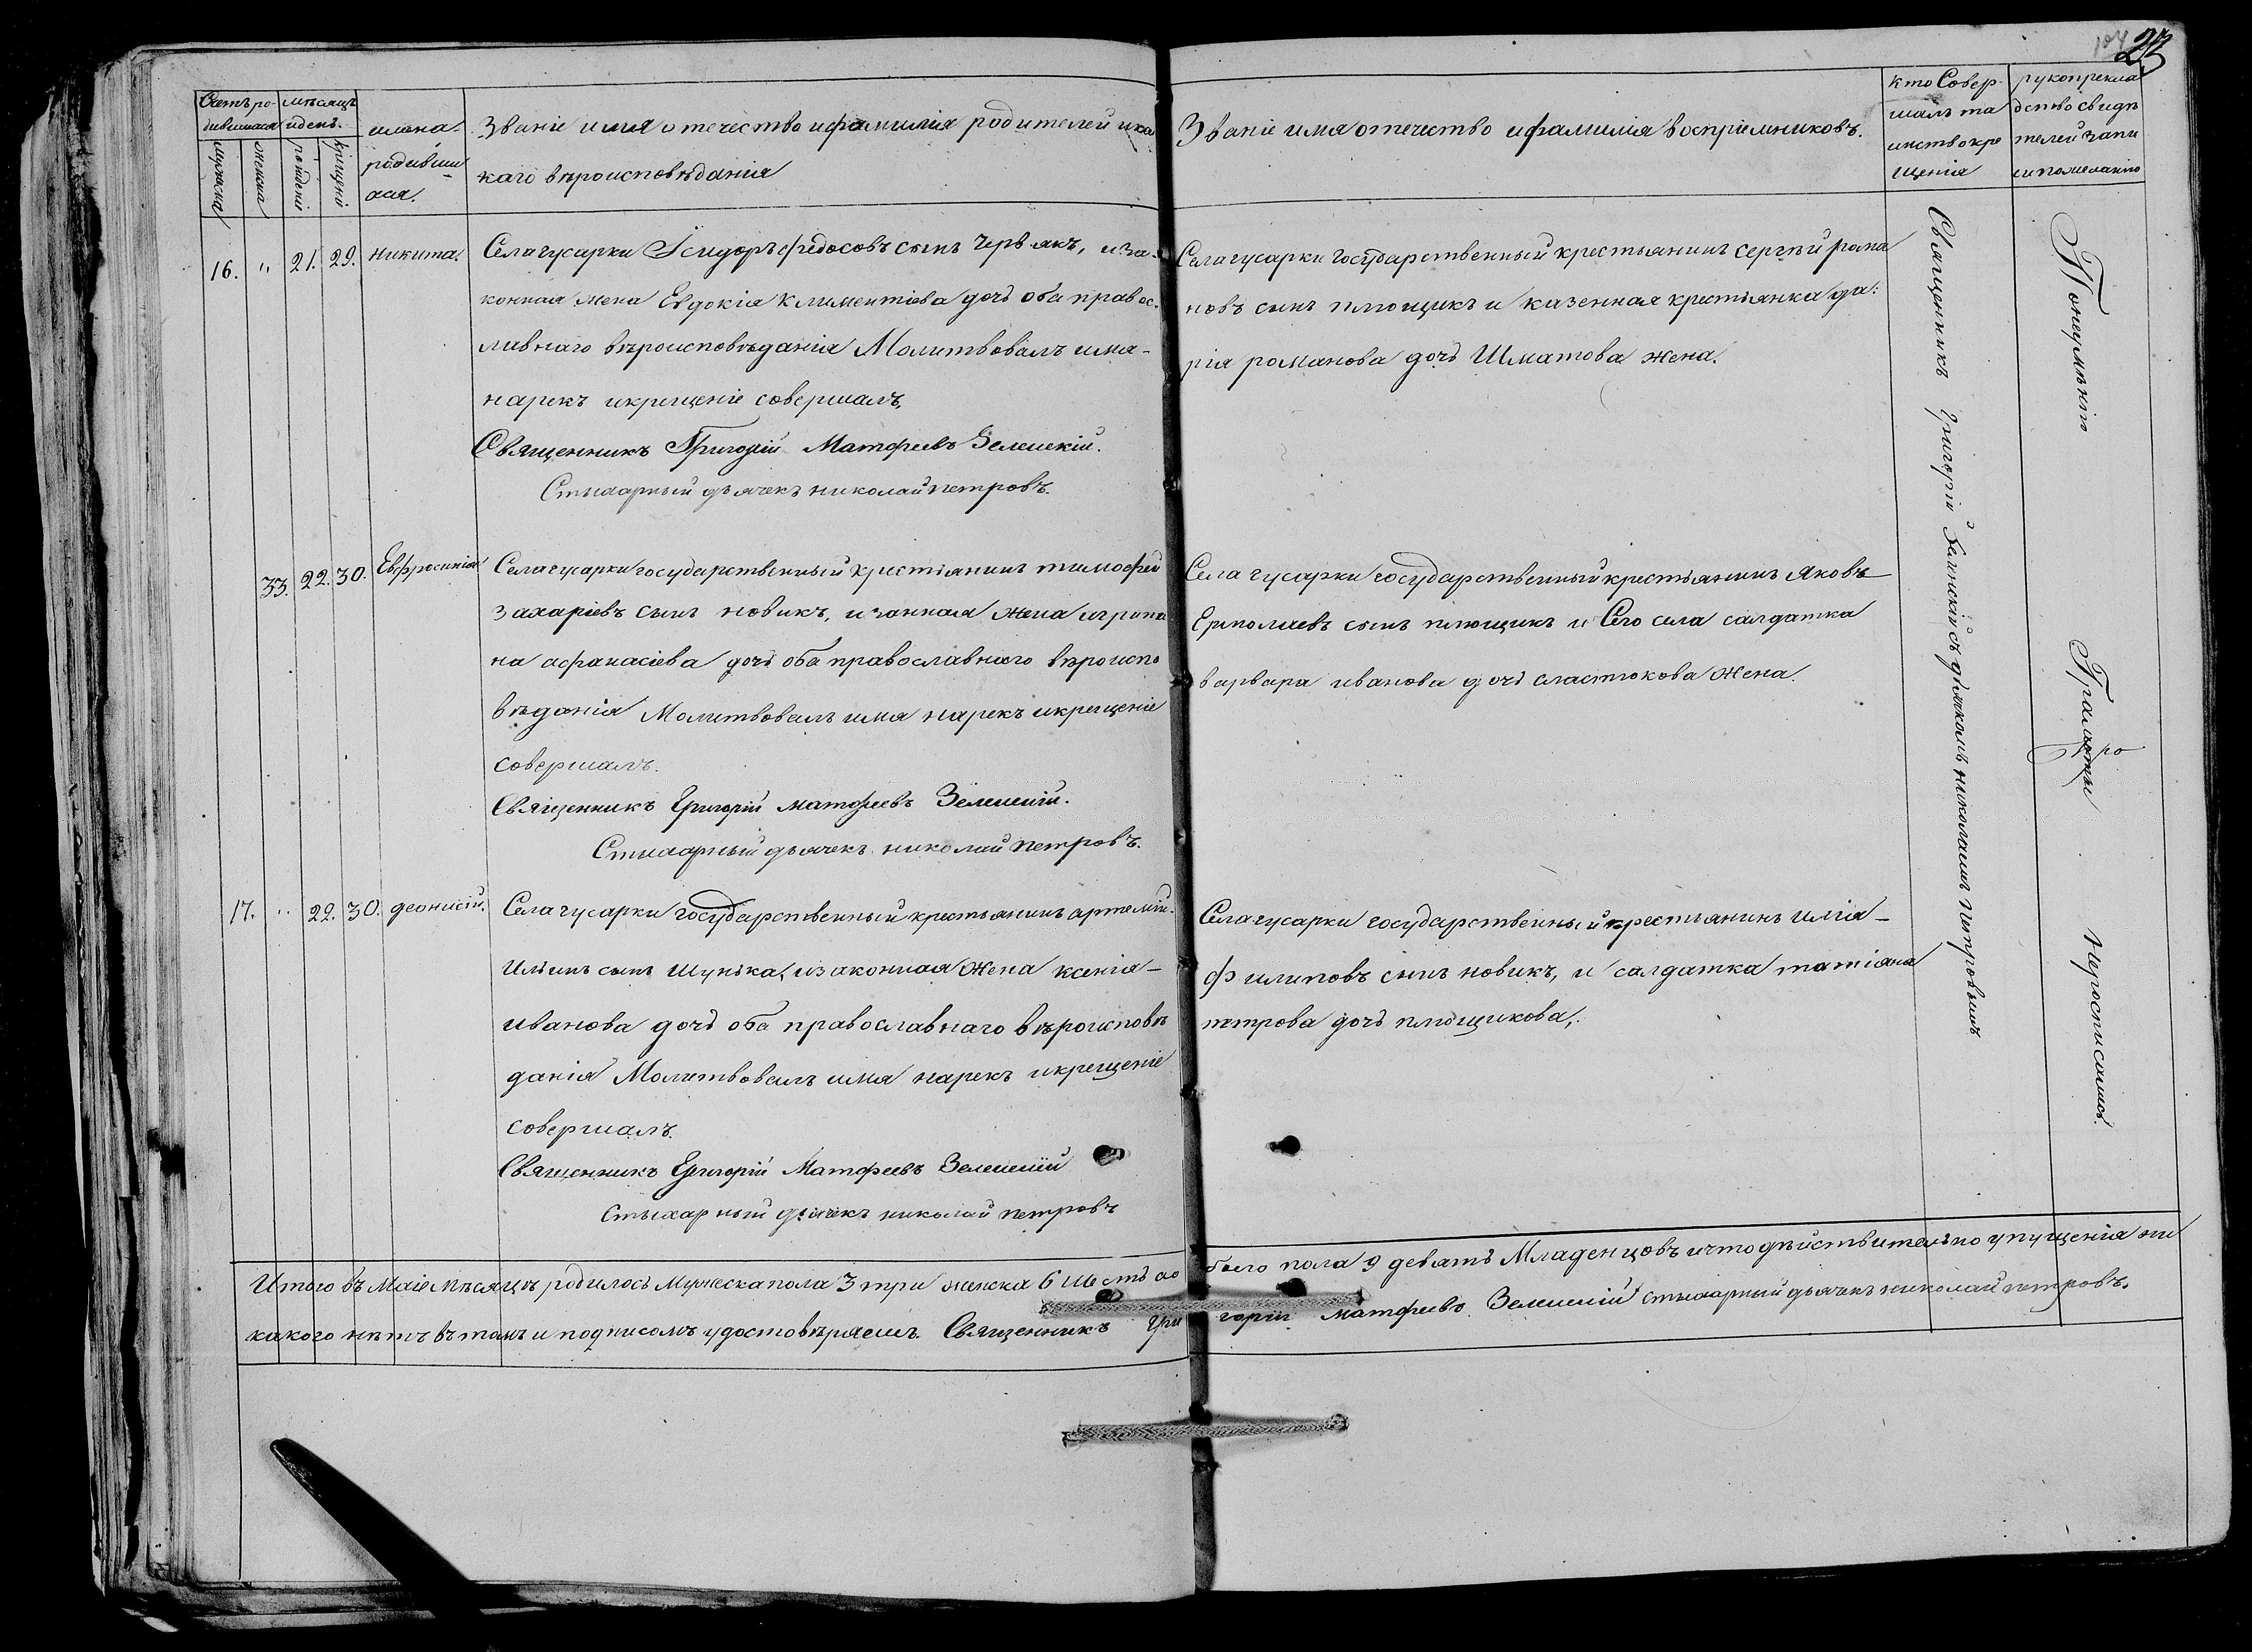 27
Счетъ ро- мѣсяцъ
дившихся и день.
мужска
женска
рожденія
крещенія
имена
родивши
хся.
Званіе имя отечество и фамилія родителей и ка
каго вѣроисповѣданія
Званіе имя отечество и фамилія воспріемниковъ.
кто Совер-
шалъ та
инство кре
щенія
рукоприкла
дство свидѣ
телей запи
си по желанію
16. " 21. 29. Никита.
Села гусарки Ісидоръ федосовъ сынъ Червякъ, и за-
конная жена Евдокія Климентіева дочь оба правос-
лавнаго вѣроисповѣданія Молитвовалъ имя-
нарекъ и крещеніе совершалъ,
Священникъ Григорій Матфеевъ Зеленскій.
Стихарный дьячекъ николай петровъ.
Села гусарки государственный крестьянинъ сергѣй рома
новъ сынъ плющикъ и казенная крестьянка да:
рія романова дочь Шматова жена.
33. 22. 30. Евфросинія
Села гусарки государственный крестьянинъ тимофей
захаріевъ сынъ новикъ, и законная жена агрипи
на афанасіева дочь оба православнаго вѣроиспо
вѣданія Молитвовалъ имя нарекъ и крещеніе
совершалъ.
Священникъ Григорій матфеевъ Зеленскій.
Стихарный дьячекъ николай петровъ.
Села гусарки государственный крестьянинъ яковъ
Ермолаевъ сынъ плющикъ и Сего села салдатка
варвара иванова дочь сластюкова жена.
17. " 22. 30. деонисій.
Села гусарки государственный крестьянинъ артемій-
Ильинъ сынъ Шунька, и законная жена ксенія-
иванова дочь оба православнаго вѣроисповѣ
данія Молитвовалъ имя нарекъ и крещеніе
совершалъ.
Священникъ Григорій Матфеевъ Зеленскій
Стихарный дьячекъ николай петровъ
Села гусарки государственный крестьянинъ илія-
Филиповъ сынъ новикъ, и салдатка татіяна
петрова дочь плющикова,.
Священникъ Григорій Зеленскій съ дьячкомъ николаемъ Петровымъ
По неумѣнію Грамоты неросписались.
Итого въ Маіе Мѣсяцѣ родилось Мужеска пола 3 три женска 6 Шесть обо
его пола 9 девять Младенцовъ и что дѣйствительно упущенія ни
какого нѣтъ въ томъ и подписомъ удостовѣряемъ. Священникъ Гри
горій матфеевъ Зеленскій стихарный дьячекъ николай петровъ.